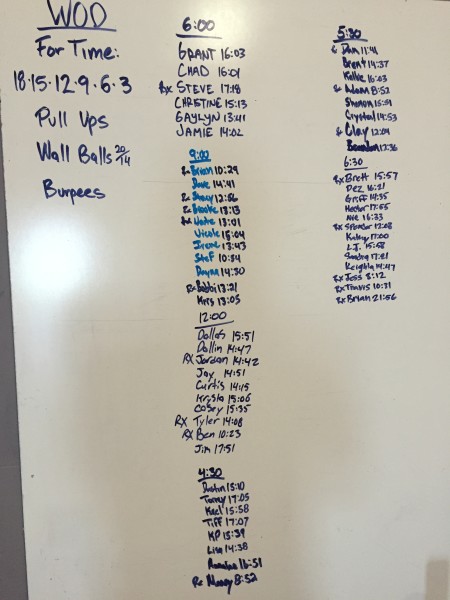 WOD
For Time:
18·15·12·9·6·3
Pull Ups
Wall Balls 20/14
Burpees
6:00
GRANT 16:03
CHAD 16:01
Rx STEVE 17:18
CHRISTINE 15:13
GAYLYN 13:41
JAMIE 14:02
9:00
Rx Brian 10:29
Dave 14:41
Rx Stacy 12:56
Rx Brooke 13:13
Rx Nate 13:01
Nicole 15:04
Irene 13:43
Stef 10:54
Dayna 14:30
Rx Bobbi 13:21
Kris 13:05
12:00
Dallas 15:51
Dallin 14:47
RX Jordan 14:42
Jay 14:51
Curtis 14:15
Krysta 15:06
Casey 15:35
RX Tyler 14:08
RX Ben 10:23
Jim 17:51
4:30
Dustin 13:10
Torrey 17:05
Kael 15:58
Tiff 17:07
KP 15:39
Lisa 14:38
16:51
Rx Manny 8:52
5:30
Dan 11:41
Brent 14:37
Kellie 16:03
Adam 8:52
Shannon 15:59
Crystal 14:53
Clay 12:04
Brandon 12:36
6:30
Rx Brett 15:57
Dez 16:21
Griff 14:35
Hector 17:55
16:33
Rx Spencer 12:08
Kelsey 17:00
L.J. 15:58
Sandra 17:21
Keighla 14:47
Rx Jess 8:12
Rx Travis 10:31
Rx Brian 21:56